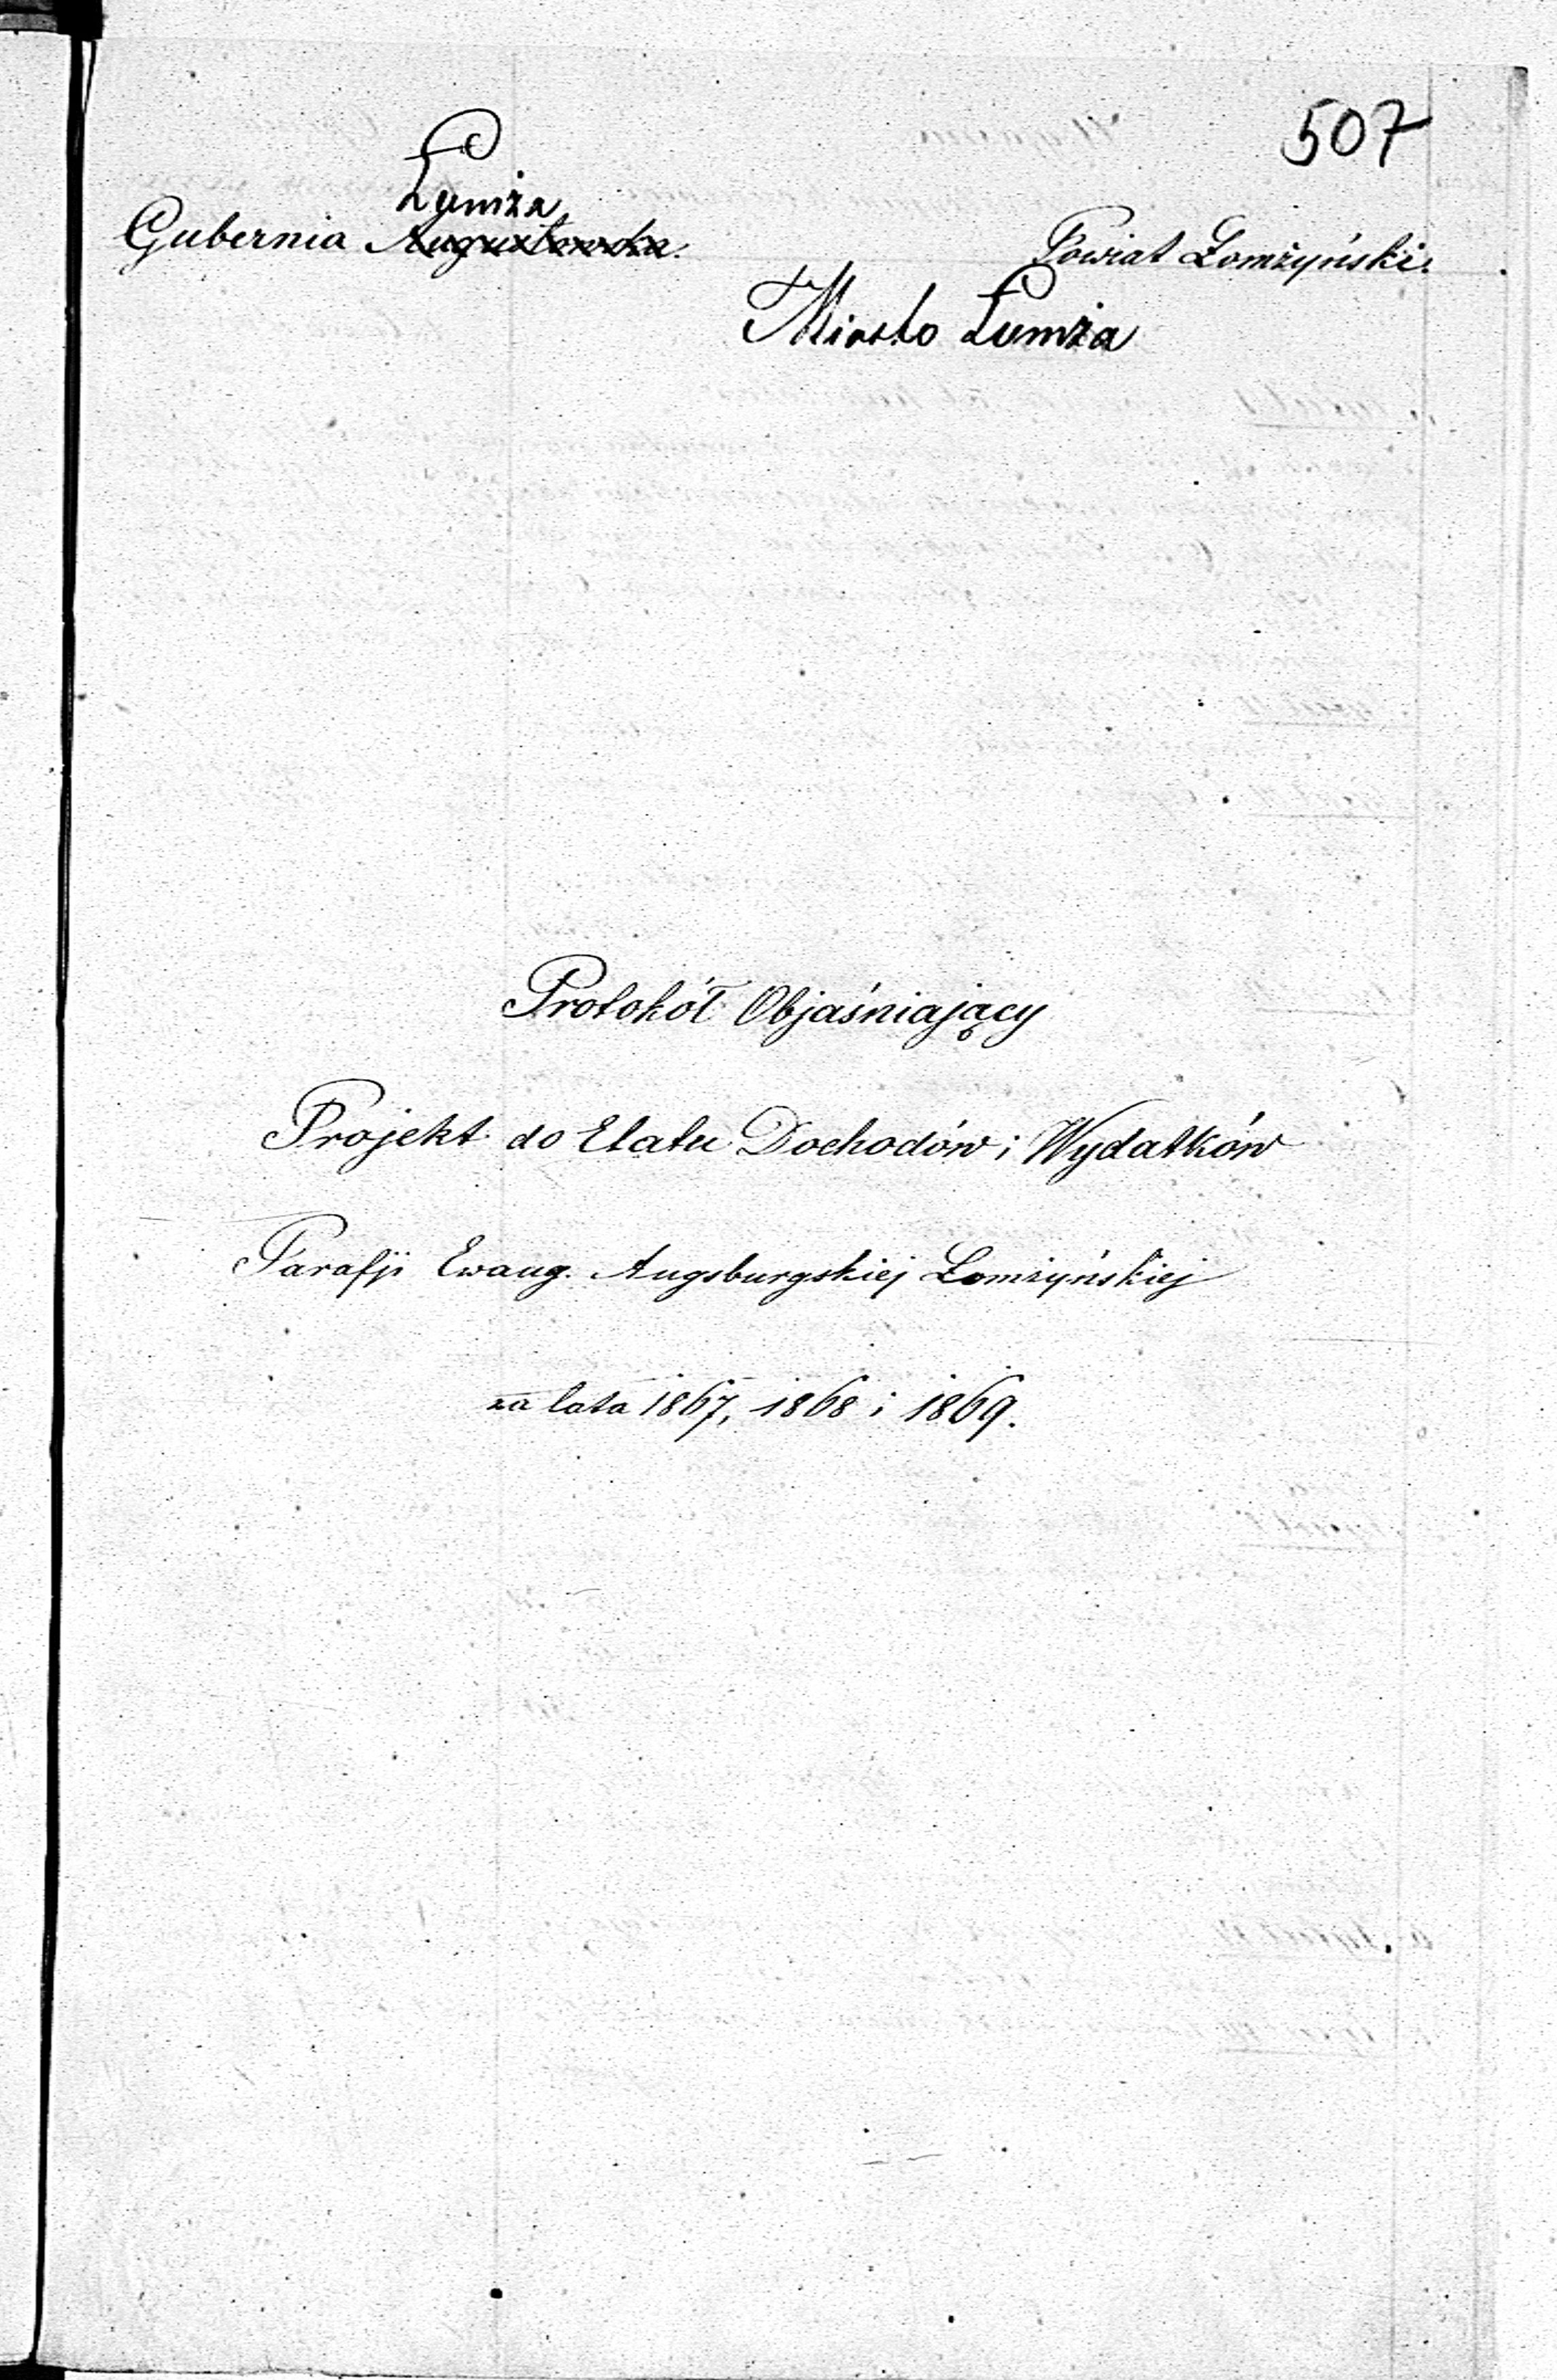 507
Łomża
Gubernia Augustowska.
Powiat Łomżyński.
Miasto Łomża
Protokół Objaśniający
Projekt do Etatu Dochodów i Wydatków
Parafji Ewang. Augsburgskiej Łomżyńskiej
na lata 1867, 1868 i 1869.